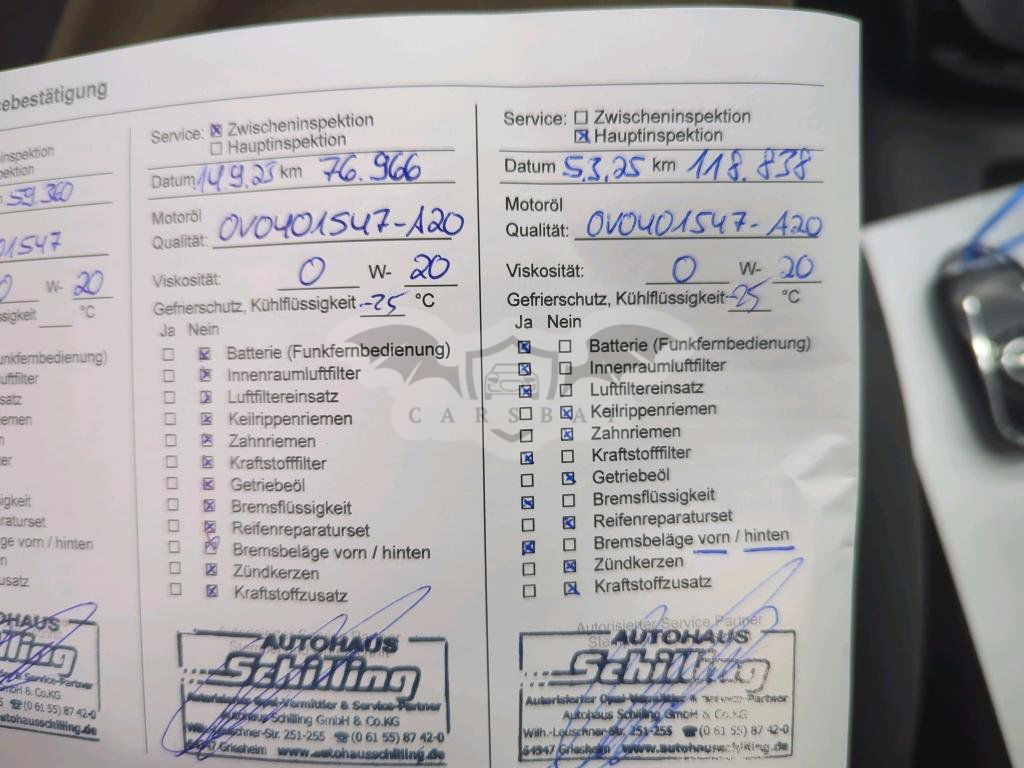 ebestätigung
inspektion
pektion
59.360
01547
0 W- 20
sigkeit °C
unkfernbedienung)
uftfilter
satz
iemen
n
er
sigkeit
araturset
äge vorn / hinten
n
zusatz
OHAUS
& Service-Partner
mbH & Co.KG
(0 61 55) 87 42-0
utohausschilling.de
Service: Zwischeninspektion
Hauptinspektion
Datum 14.9.23 km 76.966
Motoröl
Qualität: OV0401547-A20
Viskosität: 0 W- 20
Gefrierschutz, Kühlflüssigkeit -25 °C
Ja Nein
Batterie (Funkfernbedienung)
Innenraumluftfilter
Luftfiltereinsatz
Keilrippenriemen
Zahnriemen
Kraftstofffilter
Getriebeöl
Bremsflüssigkeit
Reifenreparaturset
Bremsbeläge vorn / hinten
Zündkerzen
Kraftstoffzusatz
AUTOHAUS
Schilling
Autorisierter Opel-Vermittler & Service-Partner
Autohaus Schilling GmbH & Co.KG
Wilh.-Leuschner-Str. 251-255 ☎(0 61 55) 87 42-0
64347 Griesheim www.autohausschilling.de
Service: Zwischeninspektion
Hauptinspektion
Datum 5.3.25 km 118.838
Motoröl
Qualität: OV0401547-A20
Viskosität: 0 W- 20
Gefrierschutz, Kühlflüssigkeit -25 °C
Ja Nein
Batterie (Funkfernbedienung)
Innenraumluftfilter
Luftfiltereinsatz
Keilrippenriemen
Zahnriemen
Kraftstofffilter
Getriebeöl
Bremsflüssigkeit
Reifenreparaturset
Bremsbeläge vorn / hinten
Zündkerzen
Kraftstoffzusatz
Autorisierter Service Partner
AUTOHAUS
Schilling
Autorisierter Opel-Vermittler & Service-Partner
Autohaus Schilling GmbH & Co.KG
Wilh.-Leuschner-Str. 251-255 ☎(0 61 55) 87 42-0
64347 Griesheim www.autohausschilling.de
CARSBAT